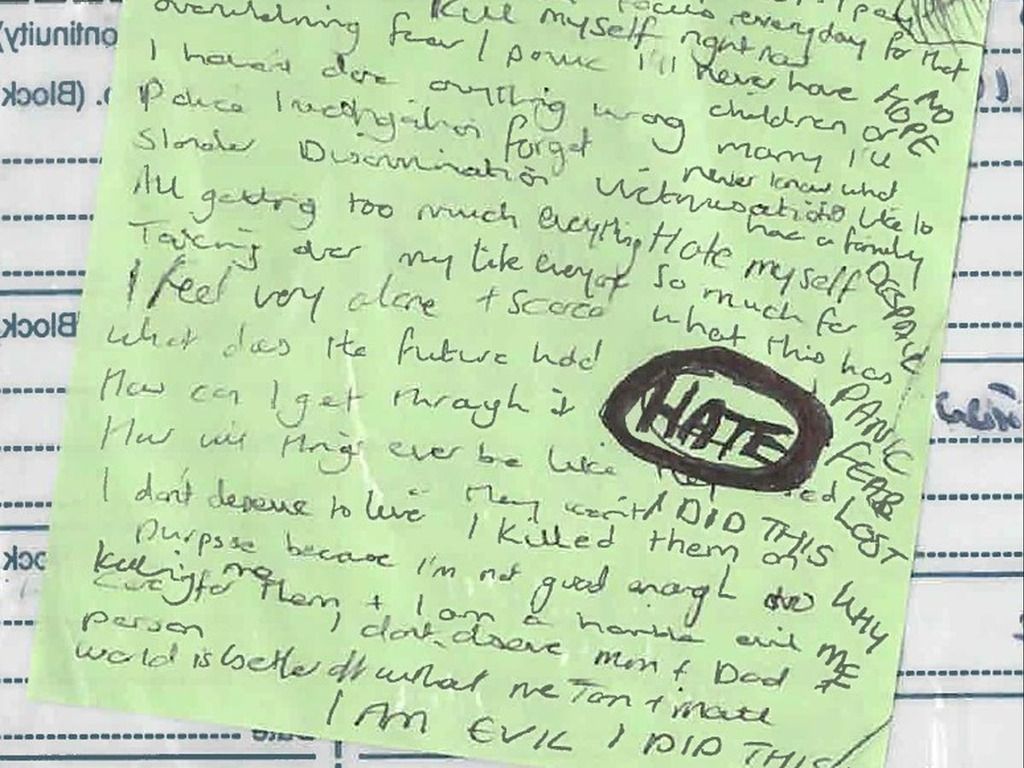 Kill myself right now everyday for that
overwhelming fear / panic I'll never have NO HOPE
I haven't done anything wrong children or
Police Investigation forget marry I'll
never know what
Slander Discrimination Victimisation like to
have a family
All getting too much everything Hate myself DESPAIR
Taking over my life everything So much for
I feel very alone + scared what this has
what does the future hold PANIC
How can I get through it HATE FEAR
How will things ever be like LOST
I don't deserve to live They went I DID THIS
I killed them on
purpose because I'm not good enough to WHY
killing me
care for them + I am a horrible evil ME
person I don't deserve Mum + Dad +
world is better off without me Tom + Matt
I AM EVIL I DID THIS
ontinuity)
(Block
Block
ock
Date